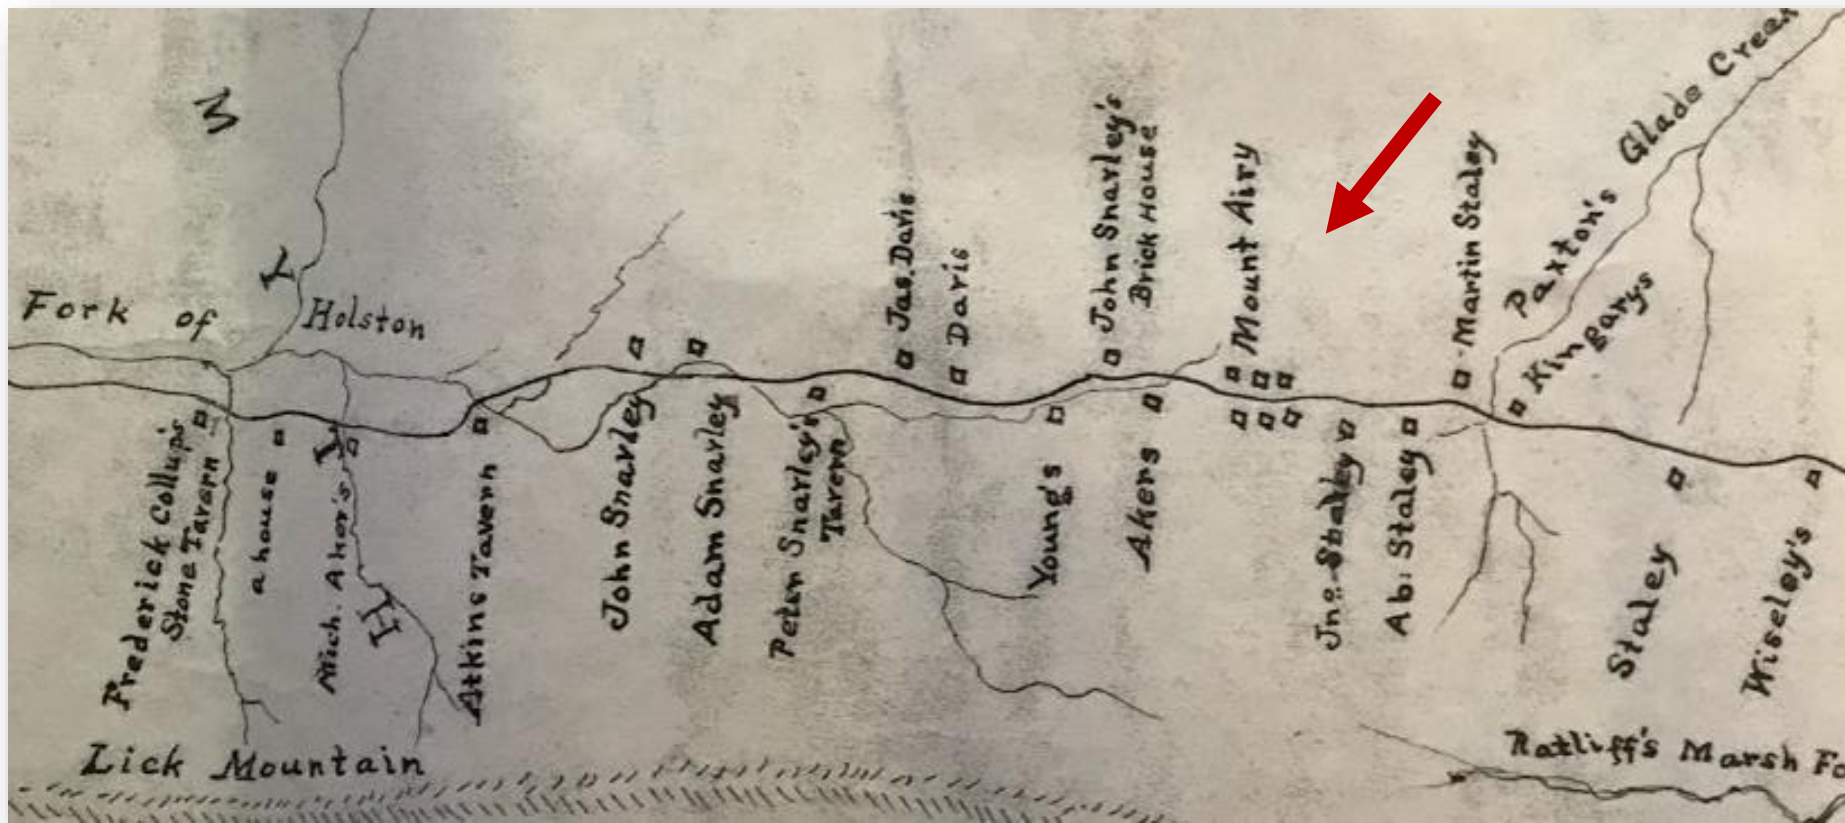 W
Y
T
H
Fork of Holston
Frederick Collup's
Stone Tavern
a house
Mich. Akor's
Atkins Tavern
John Snarley
Adam Snarley
Peter Snarley's
Tavern
Jas. Davis
Davis
Young's
John Snarley's
Brick House
Akers
Mount Airy
Jno. Staley
Ab: Staley
Martin Staley
Kingarys
Paxton's Glade Creek
Staley
Wiseley's
Lick Mountain
Ratliff's Marsh Fo